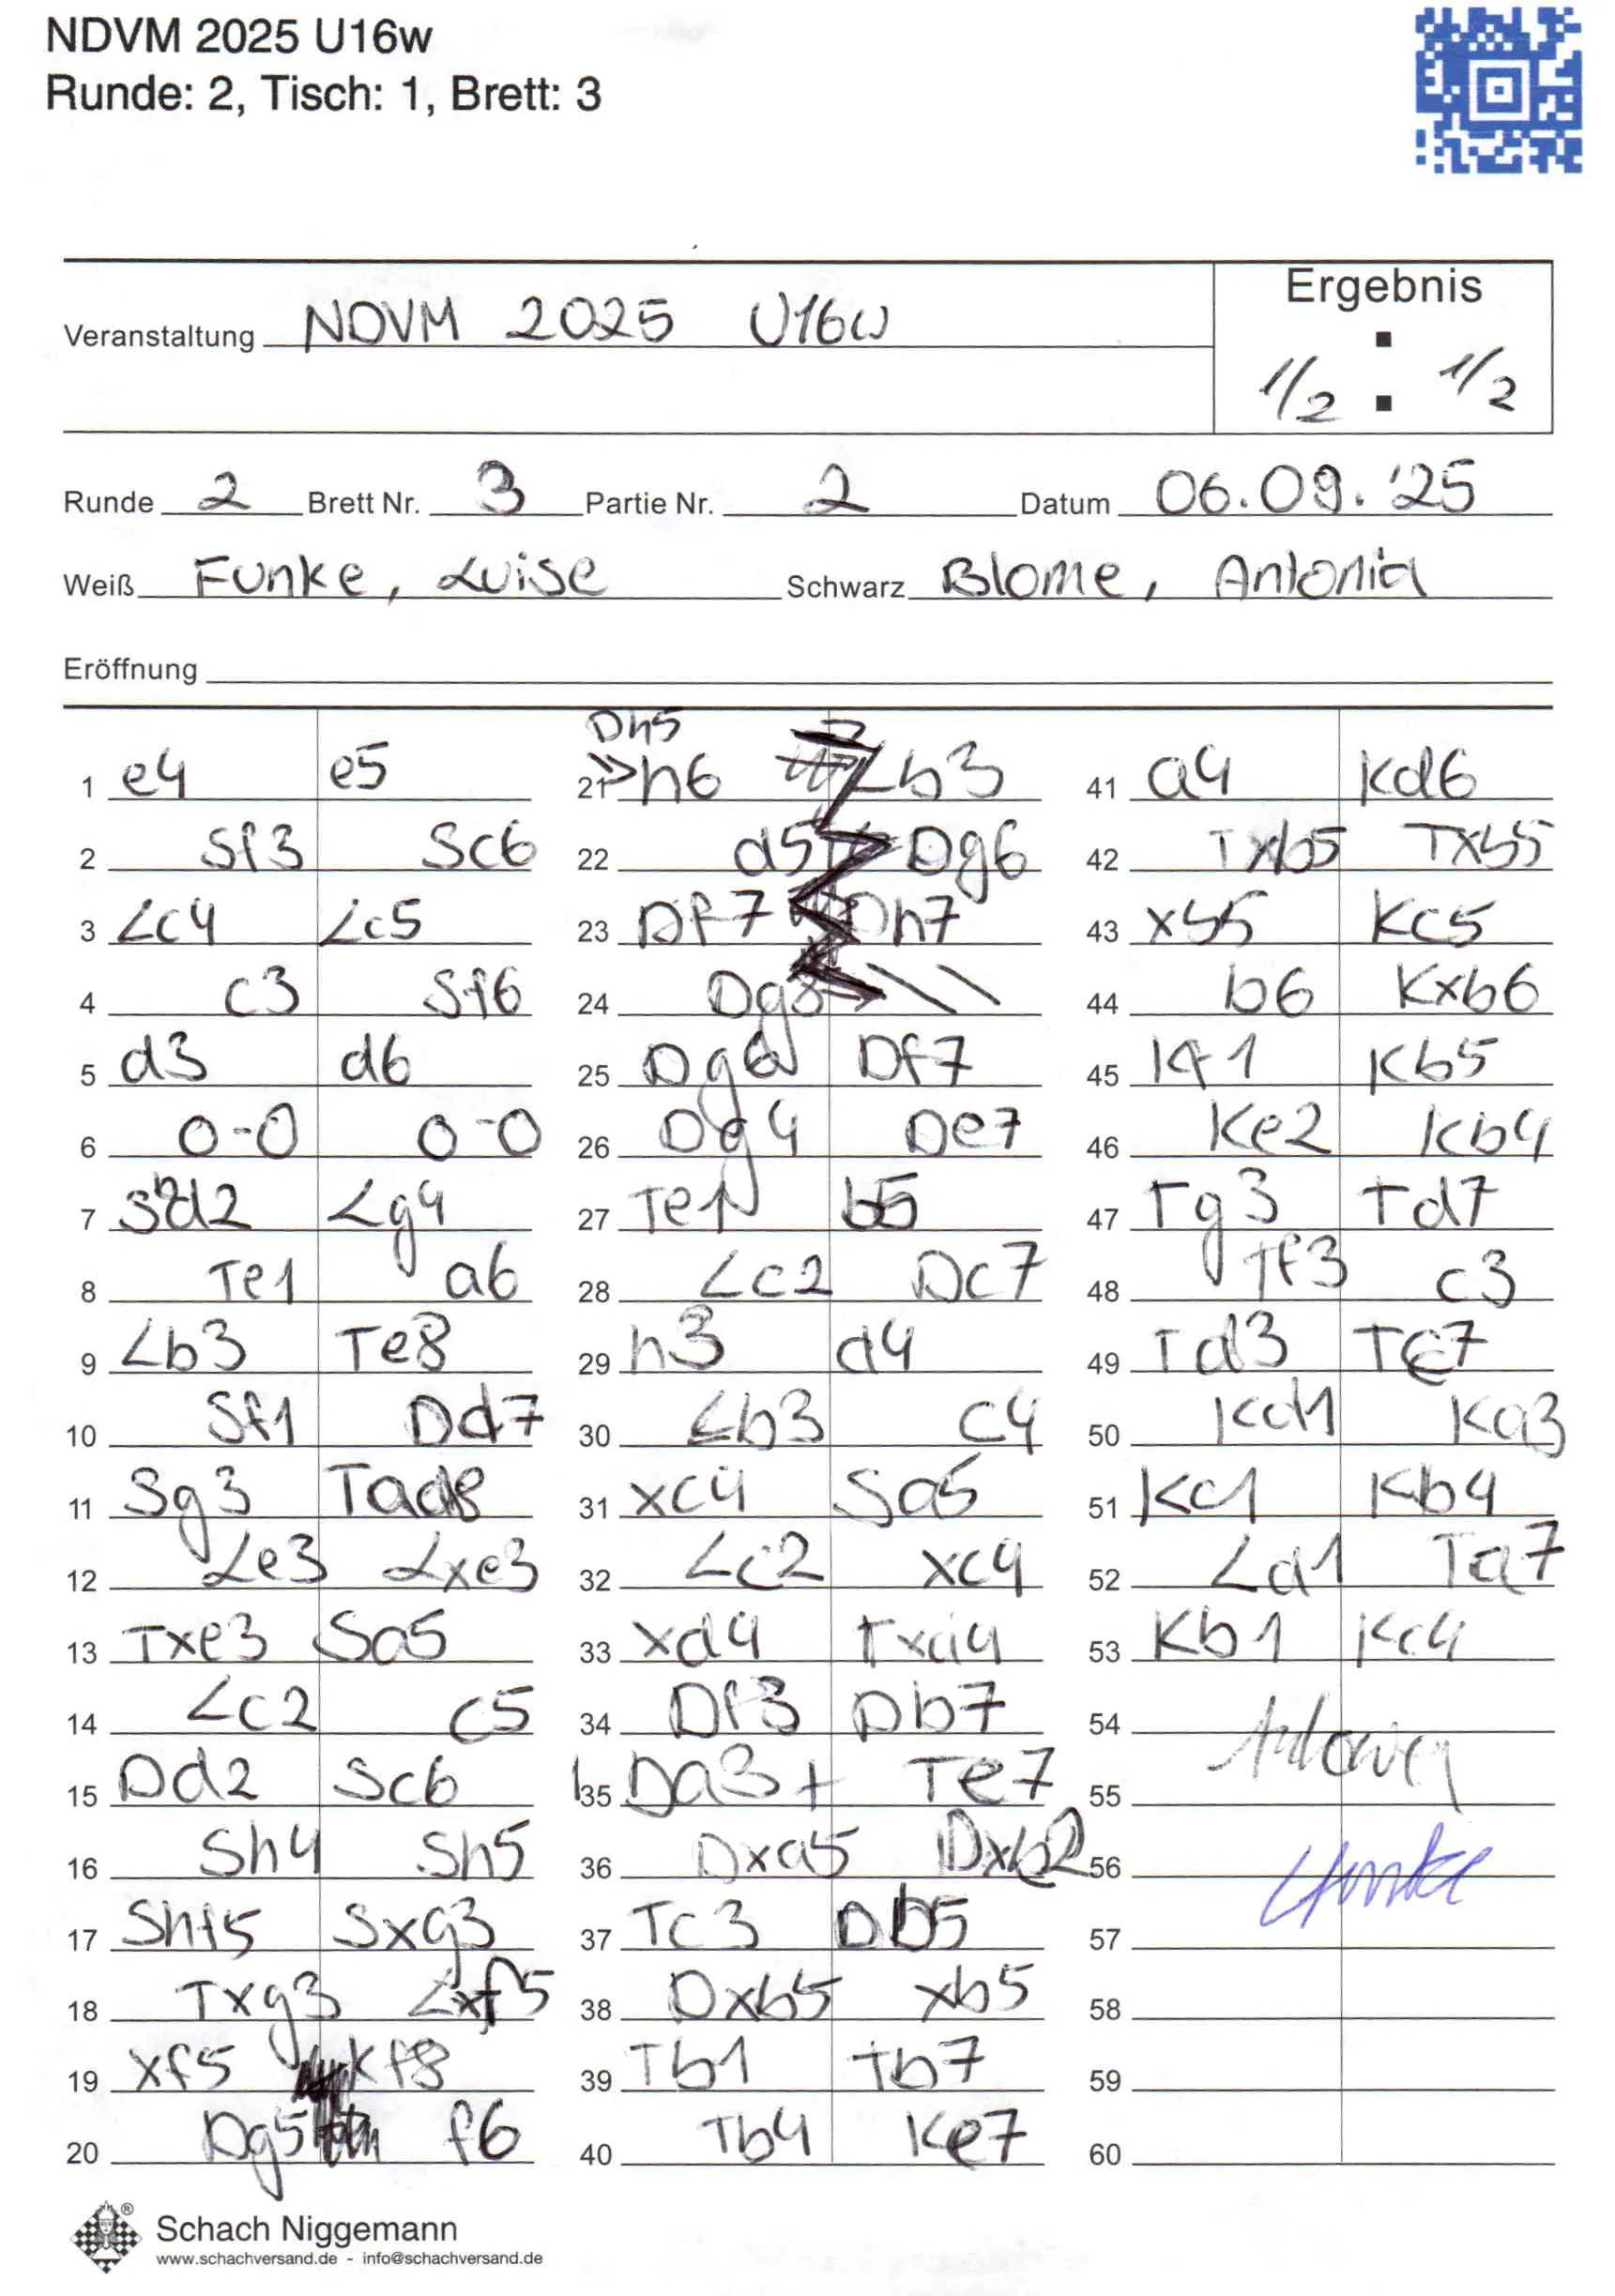 NDVM 2025 U16w
Runde: 2, Tisch: 1, Brett: 3
Ergebnis
Veranstaltung NDVM 2025 U16w
1/2 : 1/2
Runde 2 Brett Nr. 3 Partie Nr. 2 Datum 06.09.'25
Weiß Funke, Luise Schwarz Blome, Antonia
Eröffnung
1 e4 e5
2 Sf3 Sc6
3 Lc4 Lc5
4 c3 Sf6
5 d3 d6
6 0-0 0-0
7 Sbd2 Lg4
8 Te1 a6
9 Lb3 Te8
10 Sf1 Dd7
11 Sg3 Tad8
12 Le3 Lxe3
13 Txe3 Sa5
14 Lc2 c5
15 Dd2 Sc6
16 Sh4 Sh5
17 Shf5 Sxg3
18 Txg3 Lxf5
19 xf5 Kf8
20 Dg5 f6
Dh5
21 h6 Lb3
22 d5 Dg6
23 Df7 Dh7
24 Dg8
25 Dg6 Df7
26 Dg4 De7
27 Te1 b5
28 Lc2 Dc7
29 h3 d4
30 Lb3 c4
31 xc4 Sa5
32 Lc2 xc4
33 xd4 Txd4
34 Df3 Db7
35 Da3+ Te7
36 Dxa5 Dxb2
37 Tc3 Db5
38 Dxb5 xb5
39 Tb1 Tb7
40 Tb4 Ke7
41 a4 Kd6
42 Txb5 Txb5
43 xb5 Kc5
44 b6 Kxb6
45 Kf1 Kb5
46 Ke2 Kb4
47 Tg3 Td7
48 Tf3 c3
49 Td3 Tc7
50 Kd1 Ka3
51 Kc1 Kb4
52 Ld1 Ta7
53 Kb1 Kc4
54
55
56 Funke
57
58
59
60
Schach Niggemann
www.schachversand.de - info@schachversand.de